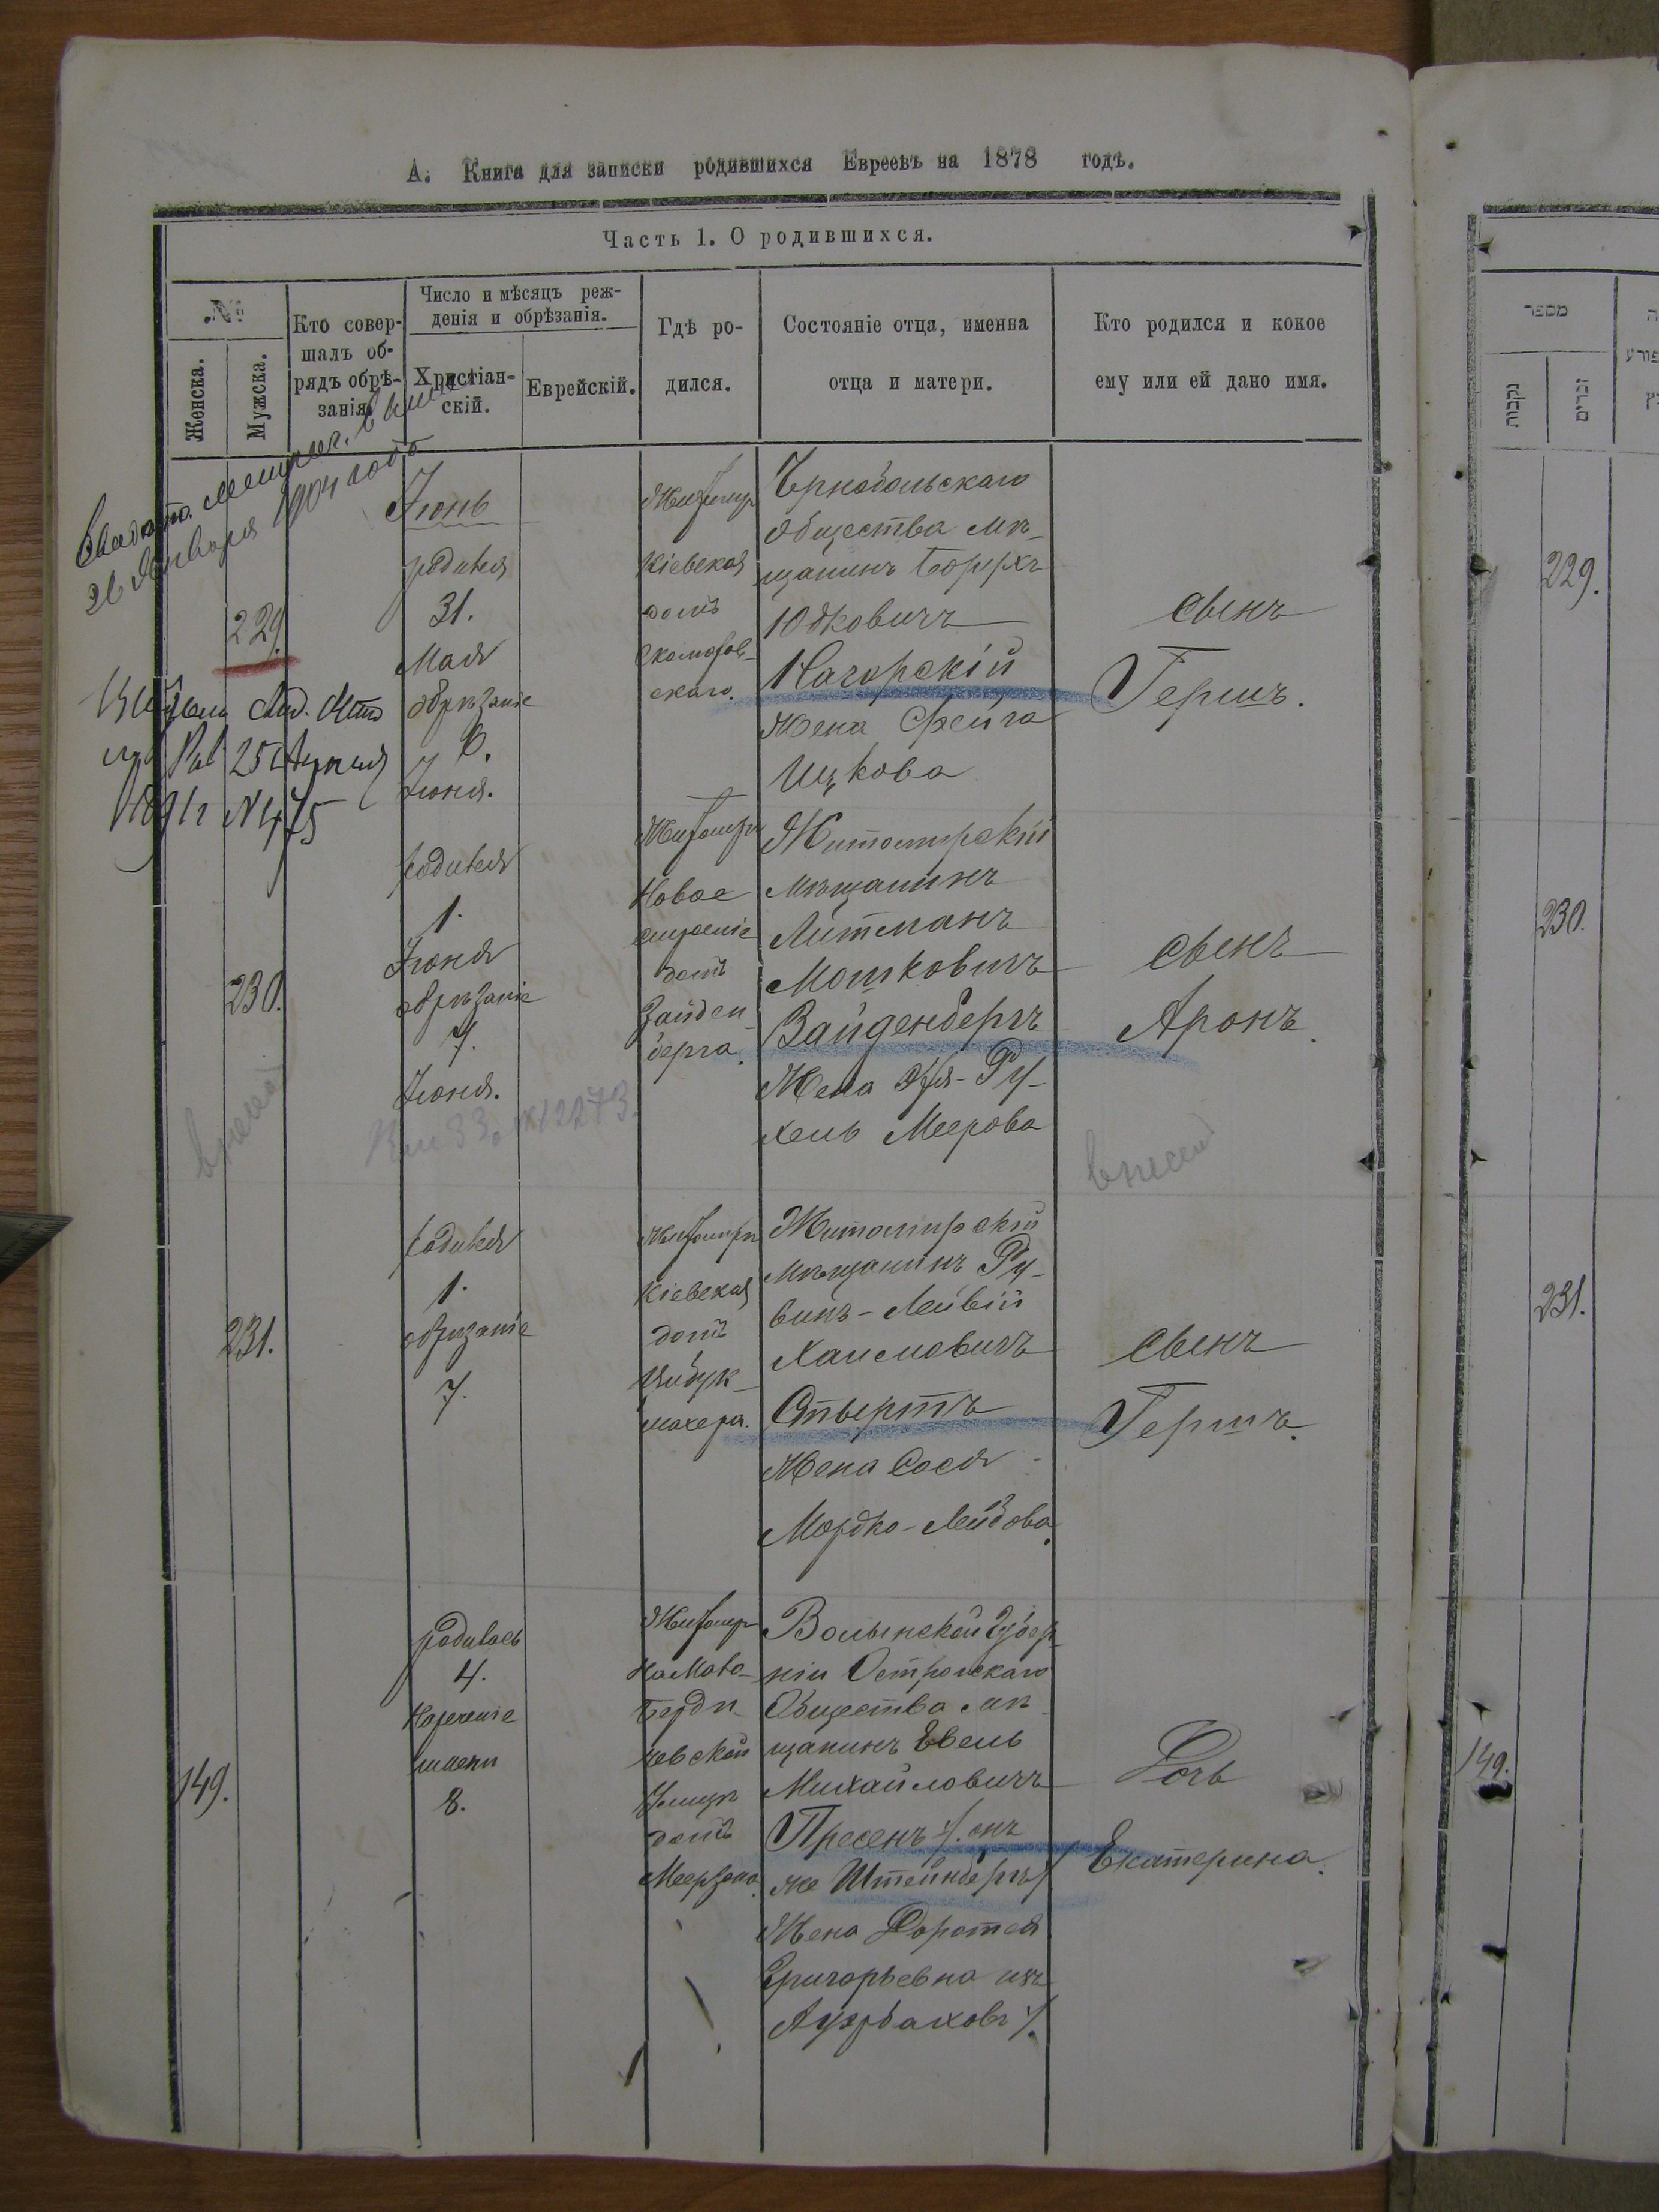 А. Книга для записки родившихся Евреевъ на 1878 годъ.
Часть 1. О родившихся.
№
Женска.
Мужска.
Кто совер-
шалъ об-
рядъ обрѣ-
занія.
Число и мѣсяцъ реж-
денія и обрѣзанія.
Христіан-
скій.
Еврейскій.
Гдѣ ро-
дился.
Состояніе отца, именна
отца и матери.
Кто родился и кокое
ему или ей дано имя.
26 Января 1904 года
25
1891 г N 475
229.
Іюнь
родился
31.
Мая
обрѣзаніе
6.
Іюня.
Житомир
Кіевская
домъ
Скоморов-
скаго.
Чрнобыльскаго
общества мѣ-
щанинъ Борухъ
Юдковичъ
Нагорскій
Жена Фейга
Ицкова
сынъ
Гершъ.
230.
родился
1.
Іюня
обрѣзаніе
7.
Іюня.
Житомир
Новое
строеніе
домъ
Зайден-
берга.
Житомирскій
мѣщанинъ
Литманъ
Мошковичъ
Зайденбергъ
Жена Эся-Ру-
хель Меерова
сынъ
Аронъ.
внесен
внесен
231.
родился
1.
обрѣзаніе
7.
Житомир
Кіевская
домъ
Цибук-
махера.
Житомирскій
Мѣщанинъ Ру-
винъ-Лейвій
Хаимовичъ
Стыртъ
Жена Сося
Мордко-Лейбова.
сынъ
Гершъ.
149.
родилась
4.
Нареченіе
имени
8.
Житомир
на Мало-
Берди-
чевской
Улицѣ
домъ
Меерзона.
Волынской Губер-
ніи Острогскаго
Общества мѣ-
щанинъ Евель
Михайловичъ
Пресенъ /. онъ
же Штейнбергъ/
Жена Доротея
Григорьевна изъ
Ауэрбаховъ /.
Дочь
Екатерина.
מספר
נקבות
זכרים
229.
230.
231.
149.